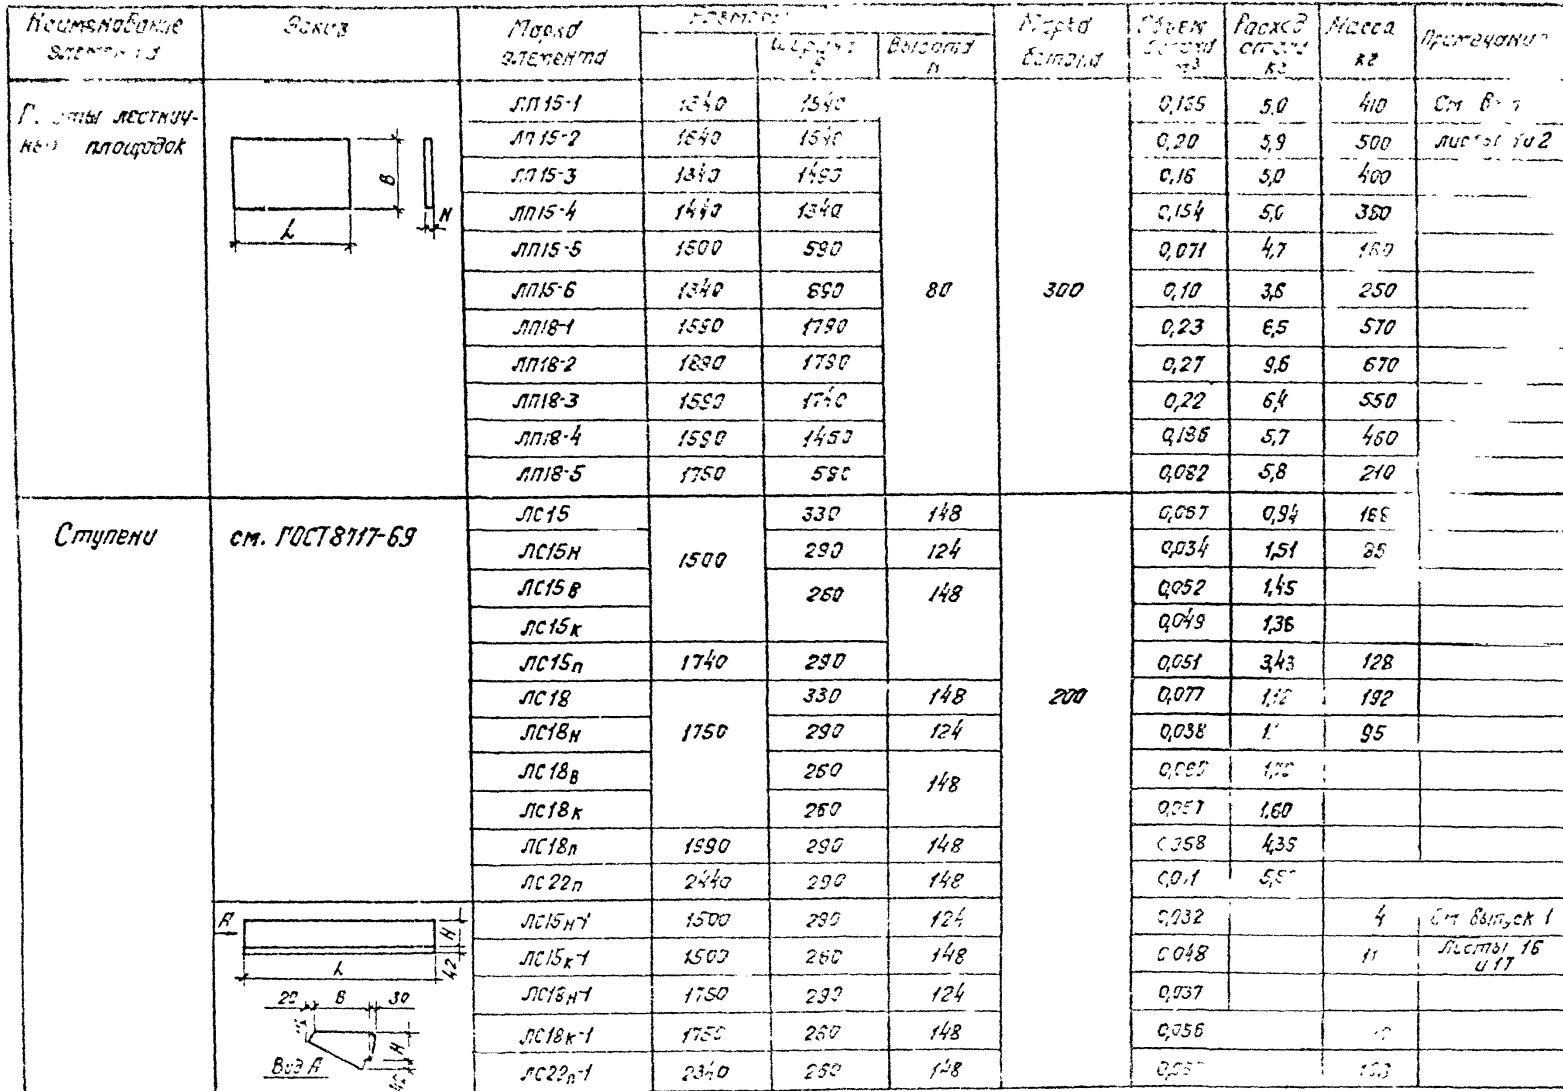 Наименование элемента Эскиз Марка элемента Размеры Марка бетона Объем бетона м³ Расход стали кг Масса кг Примечание
Ширина B Высота H
Плиты лестнич-
ных площадок
B
H
L
ЛП15-1 1340 1540 0,165 5,0 410 См.
ЛП15-2 1640 1540 0,20 5,9 500 листы 1и2
ЛП15-3 1340 1490 0,16 5,0 400
ЛП15-4 1440 1340 0,154 5,0 380
ЛП15-5 1500 590 0,071 4,7
ЛП15-6 1340 690 80 300 0,10 3,6 250
ЛП18-1 1590 1790 0,23 6,5 570
ЛП18-2 1890 1790 0,27 9,6 670
ЛП18-3 1590 1740 0,22 6,4 550
ЛП18-4 1590 1450 0,186 5,7 460
ЛП18-5 1750 590 0,082 5,8 210
Ступени см. ГОСТ 8717-69
ЛС15 1500 330 148 0,067 0,94 168
ЛС15н 290 124 0,034 1,51 85
ЛС15в 260 148 0,052 1,45
ЛС15к 0,049 1,36
ЛС15п 1740 290 0,051 3,43 128
ЛС18 1750 330 148 200 0,077 1,12 192
ЛС18н 290 124 0,038 95
ЛС18в 260 148
ЛС18к 260 0,057 1,60
ЛС18п 1990 290 148 0,058 4,35
ЛС22п 2440 290 148
A H 42
L
20 B 30
H
Вид А
ЛС15н-1 1500 290 124 0,032 См. выпуск 1
ЛС15к-1 1500 260 148 0,048 Листы 16 и 17
ЛС18н-1 1750 290 124 0,037
ЛС18к-1 1750 260 148 0,056
ЛС22п-1 2340 260 148